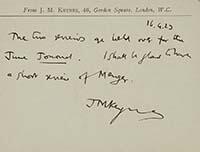 From J. M. KEYNES, 46, Gordon Square, London, W.C.
16.4.23
The two reviews go held over for the
June Journal. I shall be glad to have
a short review of Menger.
JMKeynes